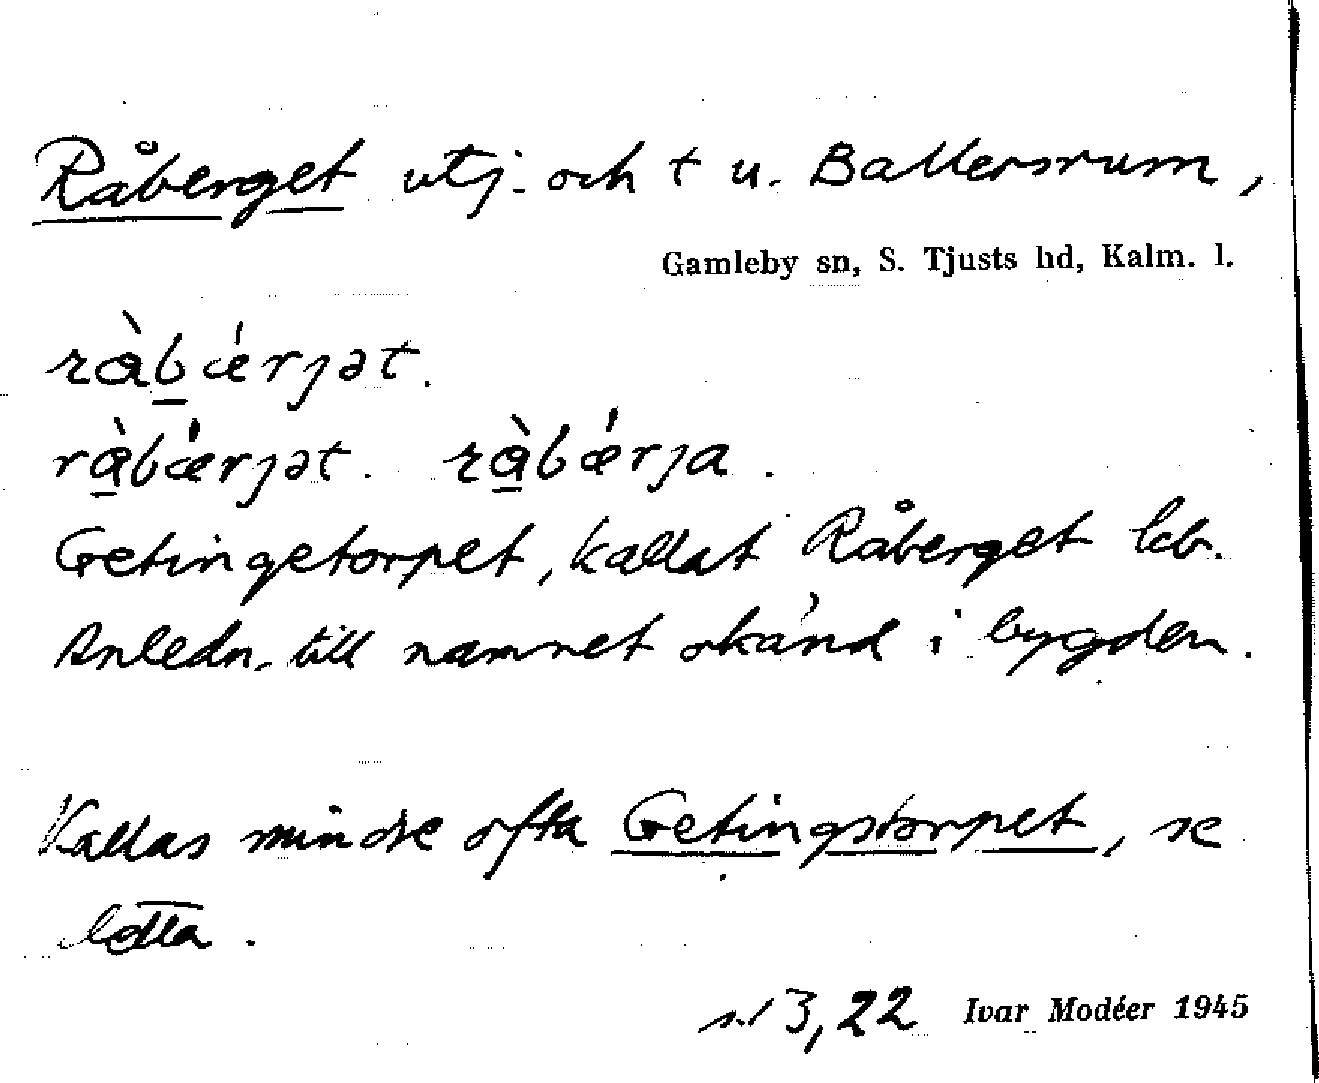 Råberget utj. och t u. Ballersrum,
Gamleby sn, S. Tjusts hd, Kalm. l.
rὰbǽrjət.
rὰ̱bǽrjət. rὰ̱bǽrja.
Getingetorpet, kallat Råberget lrb.
Anledn. till namnet okänd i bygden.
Kallas mindre ofta Getingstorpet, se
detta.
3,22 Ivar Modéer 1945